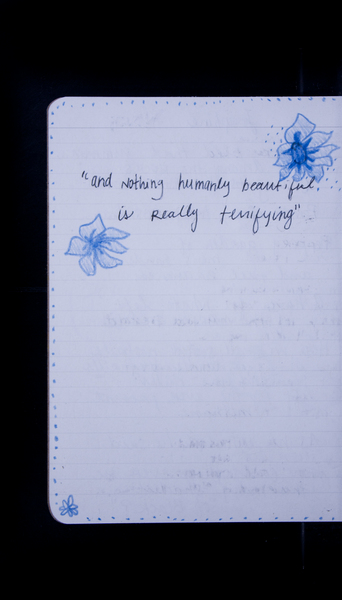 "and nothing humanly beautiful,
is really terrifying"